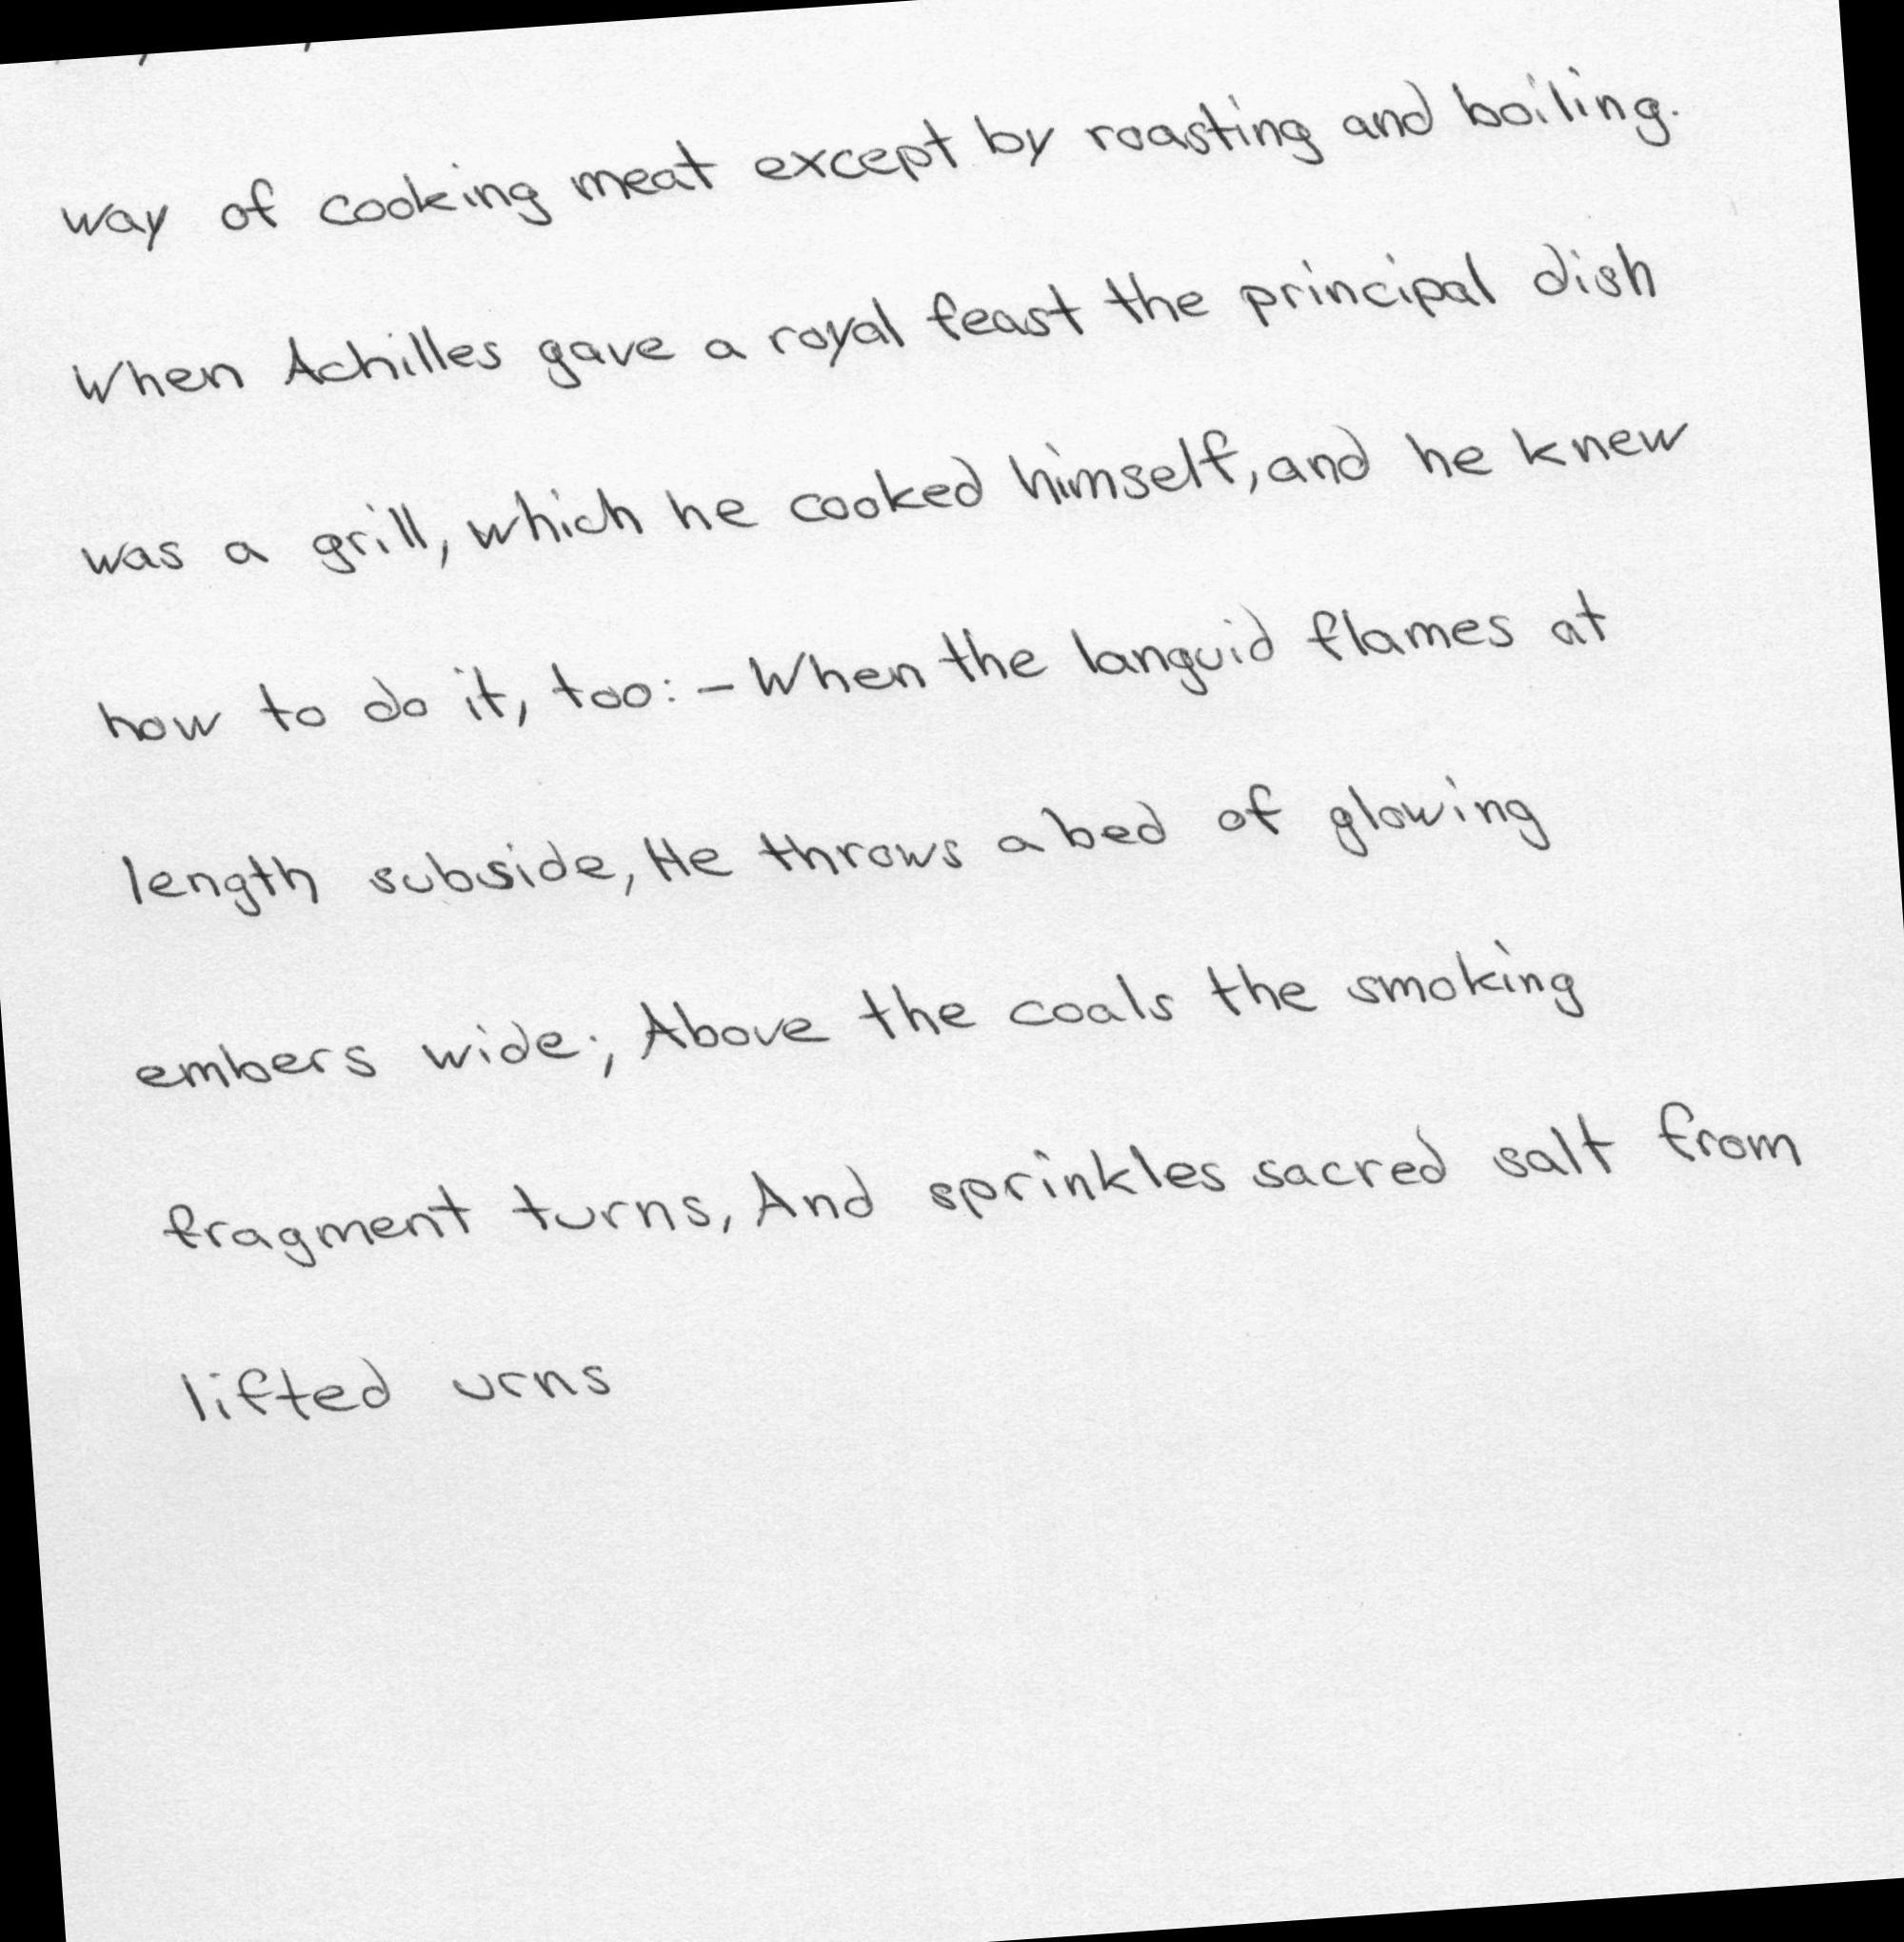 way of cooking meat except by roasting and boiling.
When Achilles gave a royal feast the principal dish
was a grill, which he cooked himself, and he knew
how to do it, too: - When the languid flames at
length subside, He throws a bed of glowing
embers wide; Above the coals the smoking
fragment turns, And sprinkles sacred salt from
lifted urns